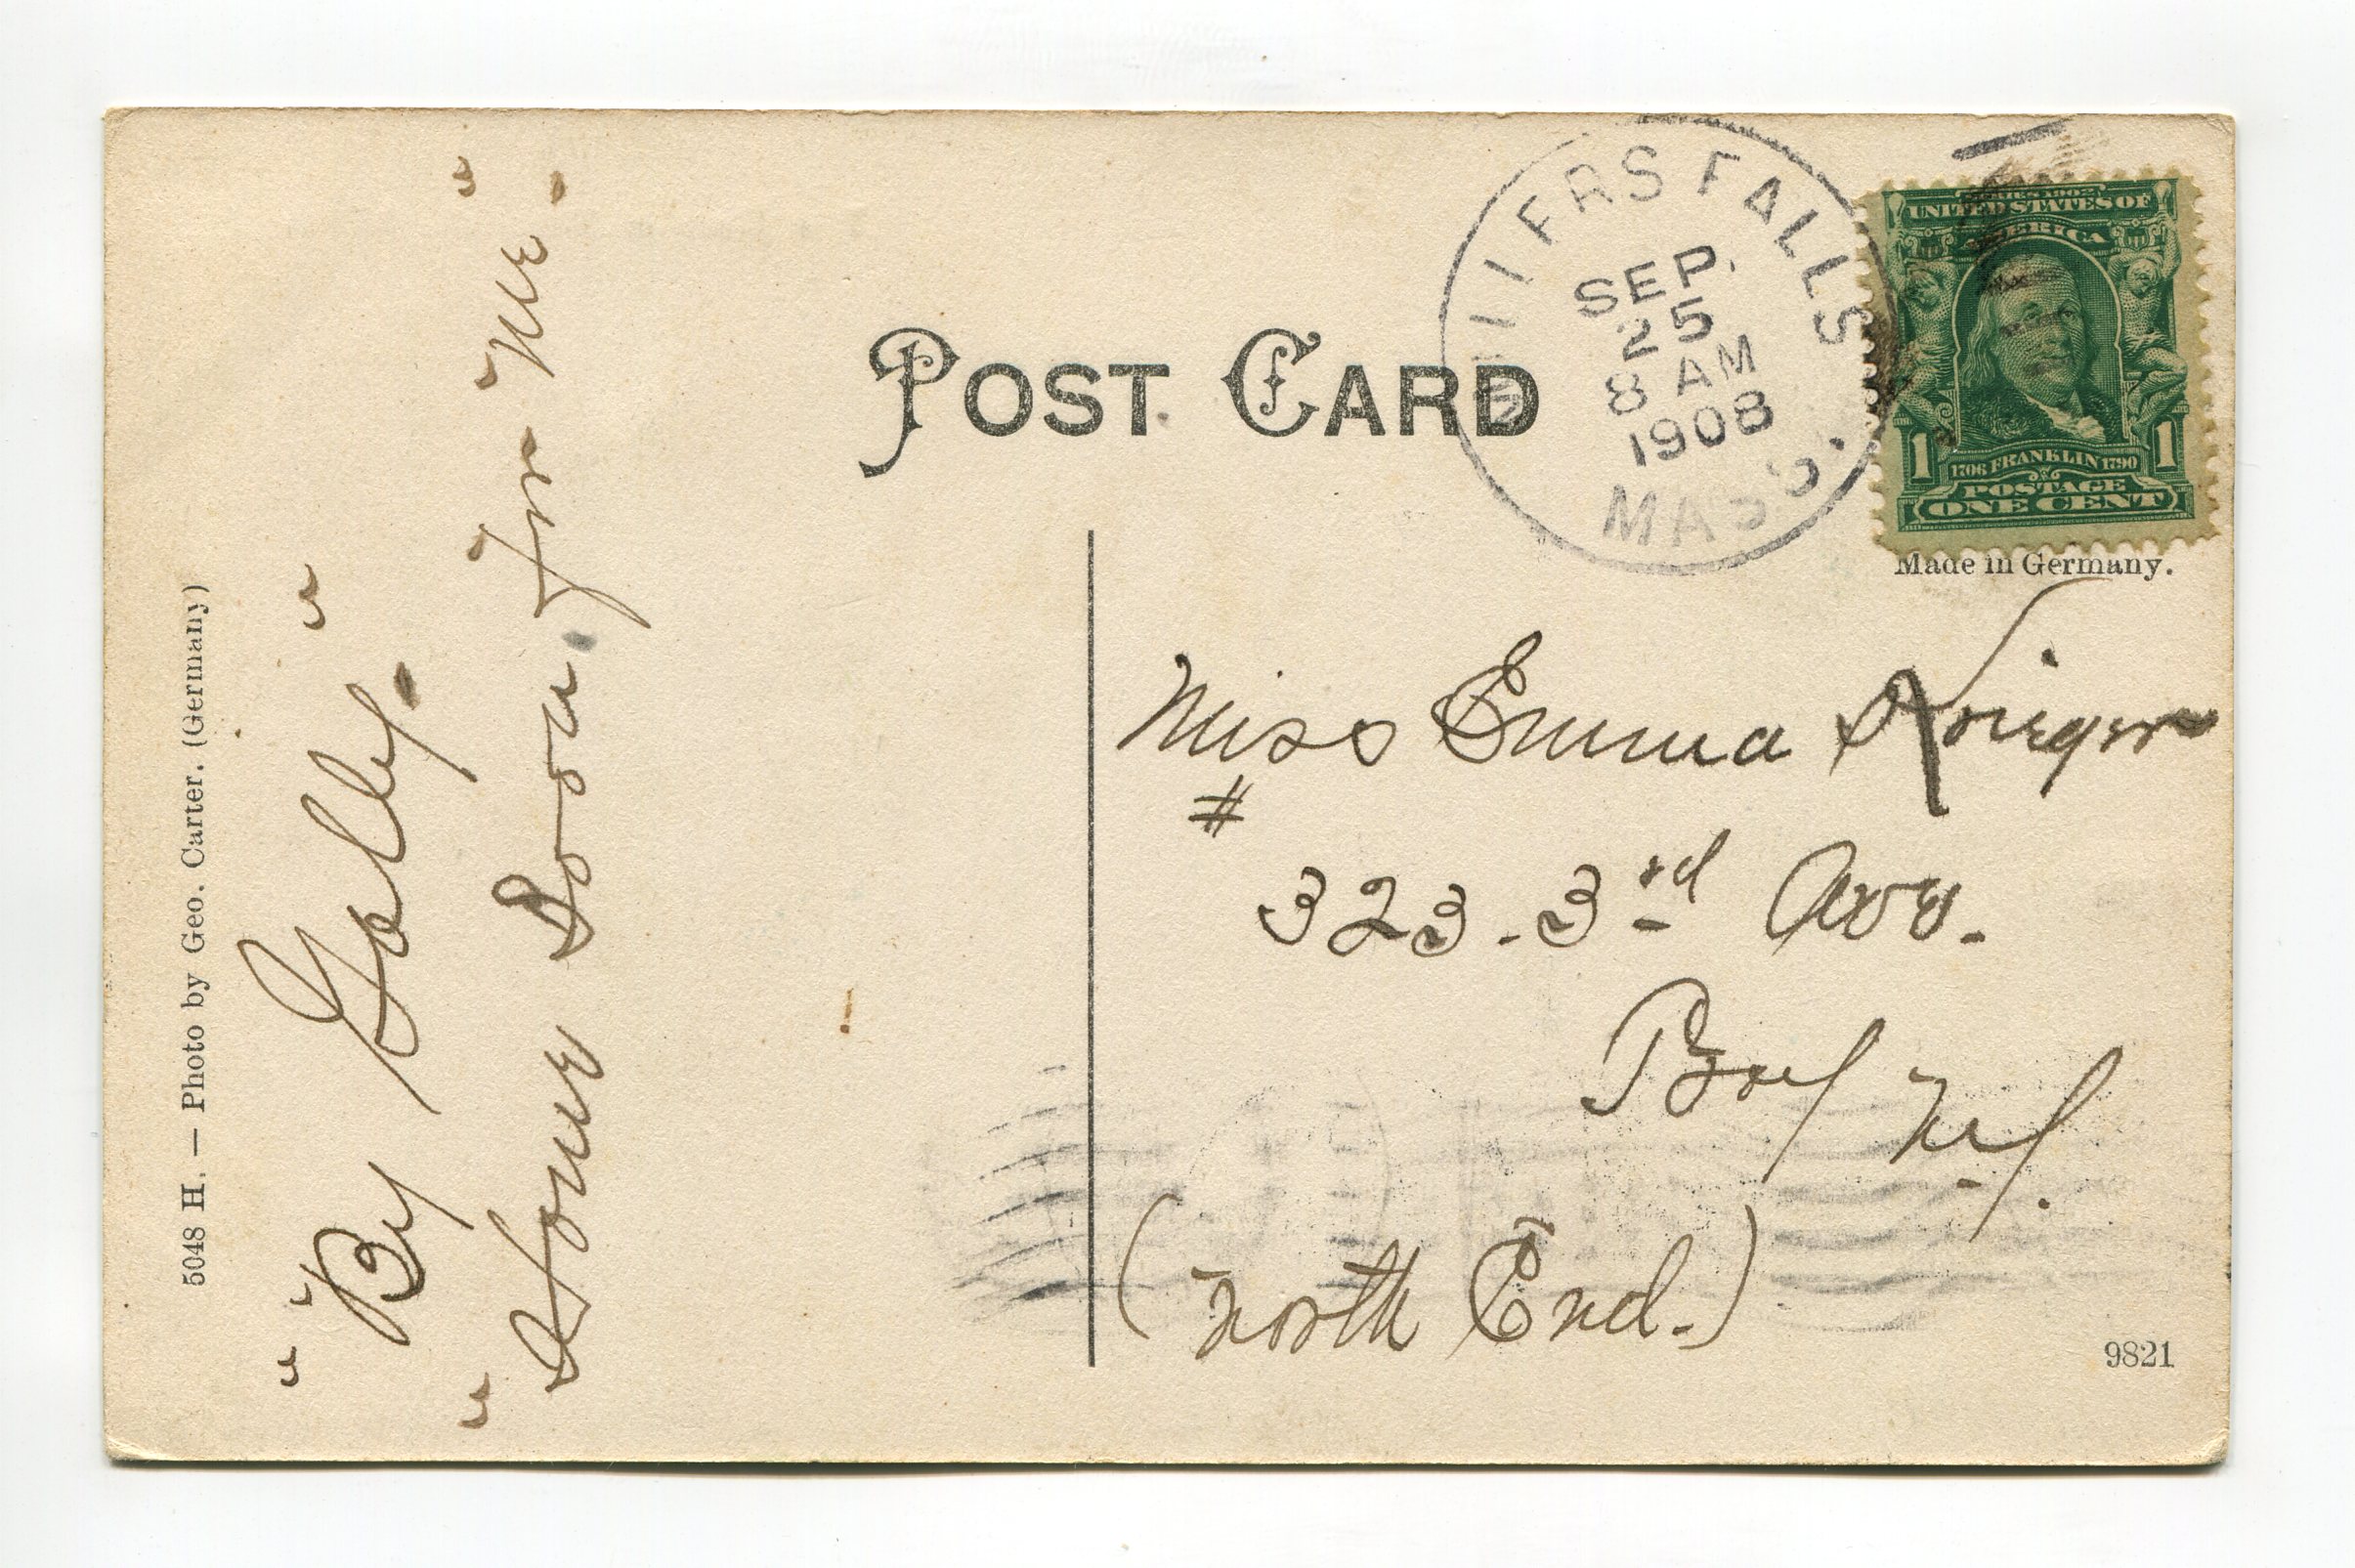 POST CARD
MILLERS FALLS
SEP.
25
8 AM
1908
MASS.
SERIES 1902
UNITED STATES OF
AMERICA
1 1
1706 FRANKLIN 1790
POSTAGE
ONE CENT
Made in Germany.
5048 H. — Photo by Geo. Carter. (Germany)
" By Golly. "
" Home Soon, for Me. "
Miss Emma Krieger
#
323 - 3rd Ave.
Troy N.Y.
(North End.)
9821